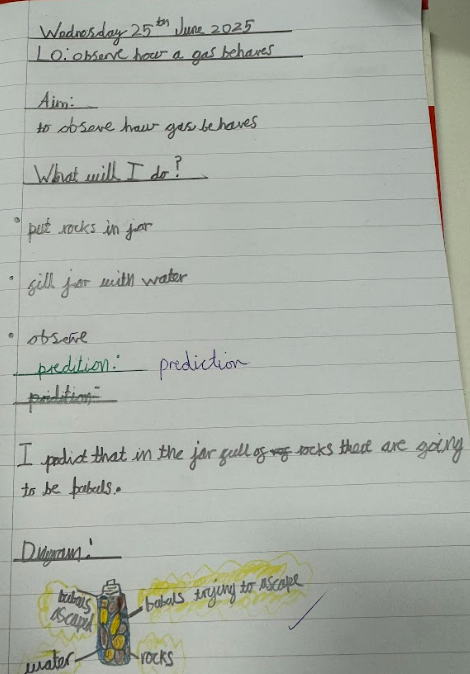 Wednesday 25th June 2025
LO: observe how a gas behaves
Aim:
to obseve haw gas behaves
What will I do?
• put rocks in jar
• fill jar with water
• observe
predition: prediction
I pedict that in the jar full of rocks theat are going
to be babals.
Diagram:
babals
escaped
babals trying to escape
water
rocks